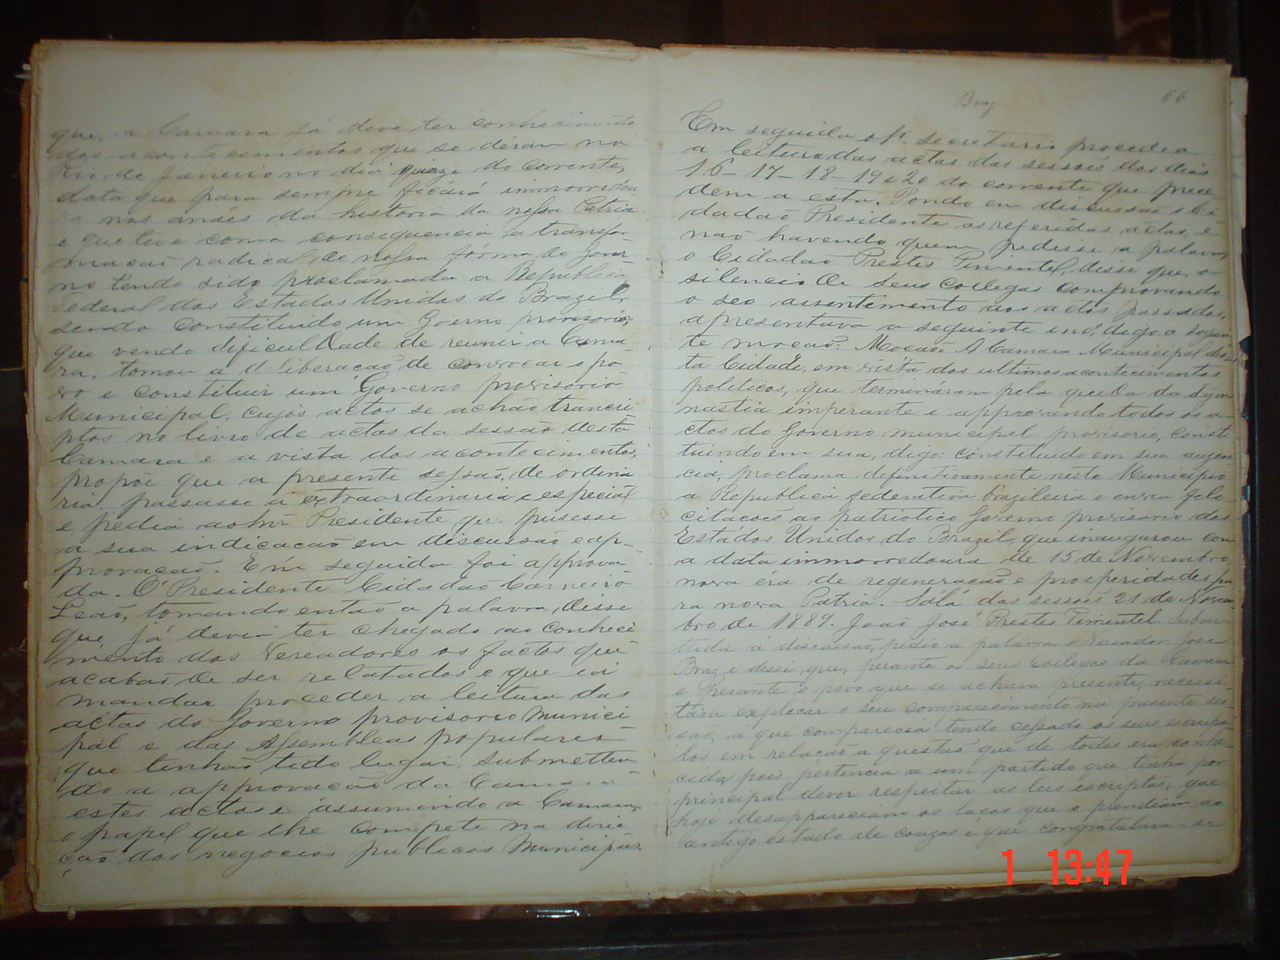 que, a Camara já deve ter conhecimento
dos acontecimentos que se déram no
Rio de Janeiro no dia quinze do corrente,
data que para sempre ficará immorredou
ra nos annes da historia da nossa Patria
e que teve como consequencia a transfor
mação radical de nossa fórma de gover
no tendo sido proclamada a Republica
Federal dos Estados Unidos do Brazil,
sendo constituido um Goerno provisorio,
que vendo dificuldade de reunir a Cama
ra, tomou a deliberação de convocar o po-
vo e constituir um Governo provisorio
Municipal, cujos actos se achão trancri
ptos no livro de actas da sessão desta
Camara e a vista dos acontecimentos,
propõe que a presente sessão, de ordina
ria, passasse a extraordinaria e especial
e pedia ao Snr Presidente que pusesse
a sua indicacão em discussão e ap-
provação. Em seguida foi approva
da. O Presidente Cidadão Carneiro
Leão, tomando então a palavra, disse
que já devia ter chegado ao conheci
mento dos Vereadores os factos que
acabão de ser relatados e que ia
mandar proceder a leitura das
actas do governo provisorio Munici
pal e das Assembleas populares
que tinhão tido lugar, submetten
do a approvação da Camara
estes actos e assumindo a Camara
o papel que lhe compete na dire
ção dos negocios publicos Municipaes.
Braz
66
Em seguida o 1º secretario procedeu
a leitura das actas das sessões dos dias
16-17-18-19 e 20 do corrente que prece
dem a esta. Pondo em discussão o Ci
dadão Presidente as referidas actas, e
não havendo quem pedisse a palavra,
o Cidadão Prestes Pimentel, disse que, o
silencio de seus collegas comprovando
o seo assentimento aos actos passados,
apresentava a seguinte ind, digo a seguin
te moção: Moção A Camara Municipal des
ta Cidade, em vista dos ultimos acontecimentos
politicos, que termináram pela queda da dym
nastia imperante e approvando todos os a
ctos do Governo municipal provisorio, consti
tuindo em sua, digo: constituido em sua auzen
cia, proclama definitivamente neste Municipio
a Republica federativa brazileira e envia feli
citacões ao patriotico Governo provisorio dos
Estados Unidos do Brazil, que inaugurou com
a data immorredoura de 15 de Novembro,
nova era de regeneração e prosperidades pa
ra nova Patria. Sála das sessões 21 de Novem
bro de 1889. João José Prestes Pimentel. Subme
tida á discussão, pedio a palavra o Vereador José
Braz e disse que, perante os seus collegas da Camara
e perante o povo que se achava presente, necessi
tava explicar o seu comparecimento na presente ses
são, a que comparecia tendo cessado os seus escrupu
los em relação a questão que de todos era conhe
cida, pois pertencia a um partido que tinha por
principal dever respeitar as leis escriptas, que
hoje desappareciam os lacos que o prendiam ao
antigo estado de couzas e que congratulava-se
1 13:47